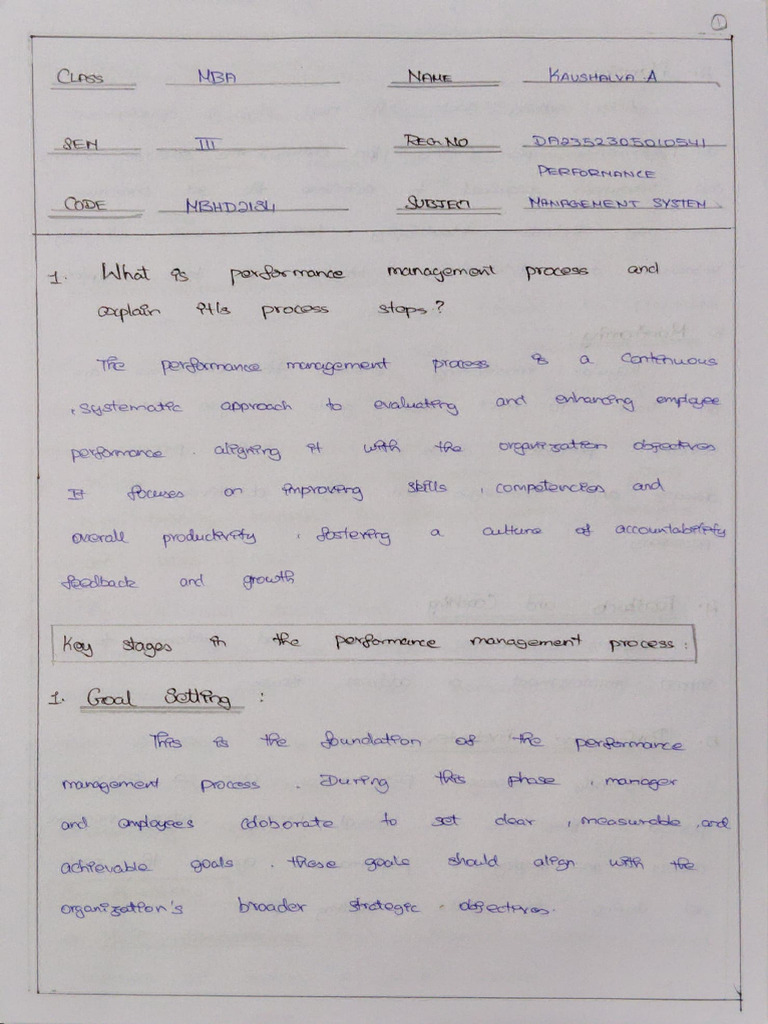 1
CLASS MBA NAME KAUSHALYA A
SEM III REG.NO DA2352305010541
PERFORMANCE
CODE MBHD2134 SUBJECT MANAGEMENT SYSTEM
1. What is performance management process and
explain it's process steps?
The performance management process is a continuous
, systematic approach to evaluating and enhancing employee
performance . aligning it with the organization objectives
It focuses on improving skills , competencies and
overall productivity , fostering a culture of accountability
feedback and growth
Key stages in the performance management process :
1. Goal Setting :
This is the foundation of the performance
management process . During this phase , manager
and employees coloborate to set clear , measurable , and
achievable goals . these goals should align with the
organization's broader strategic . objectives.